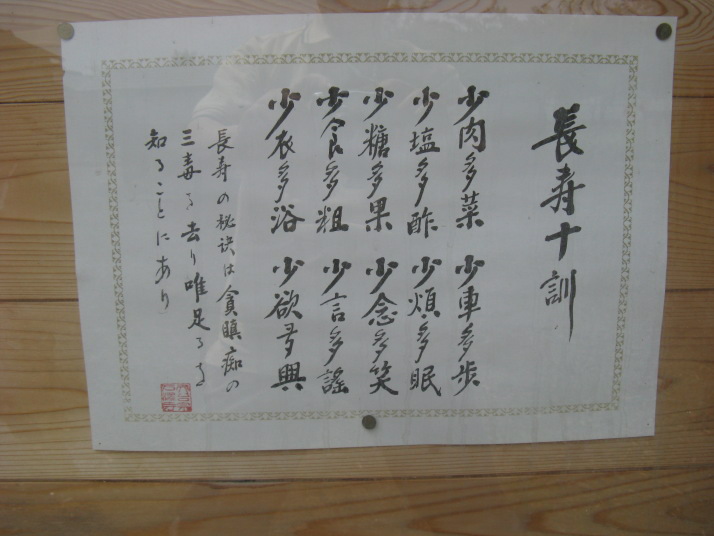 長寿十訓
少肉多菜 少車多歩
少塩多酢 少煩多眠
少糖多果 少念多笑
少食多粗 少言多謡
少衣多浴 少欲多興
長寿の秘訣は貪瞋痴の
三毒を去り唯足るを
知ることにあり